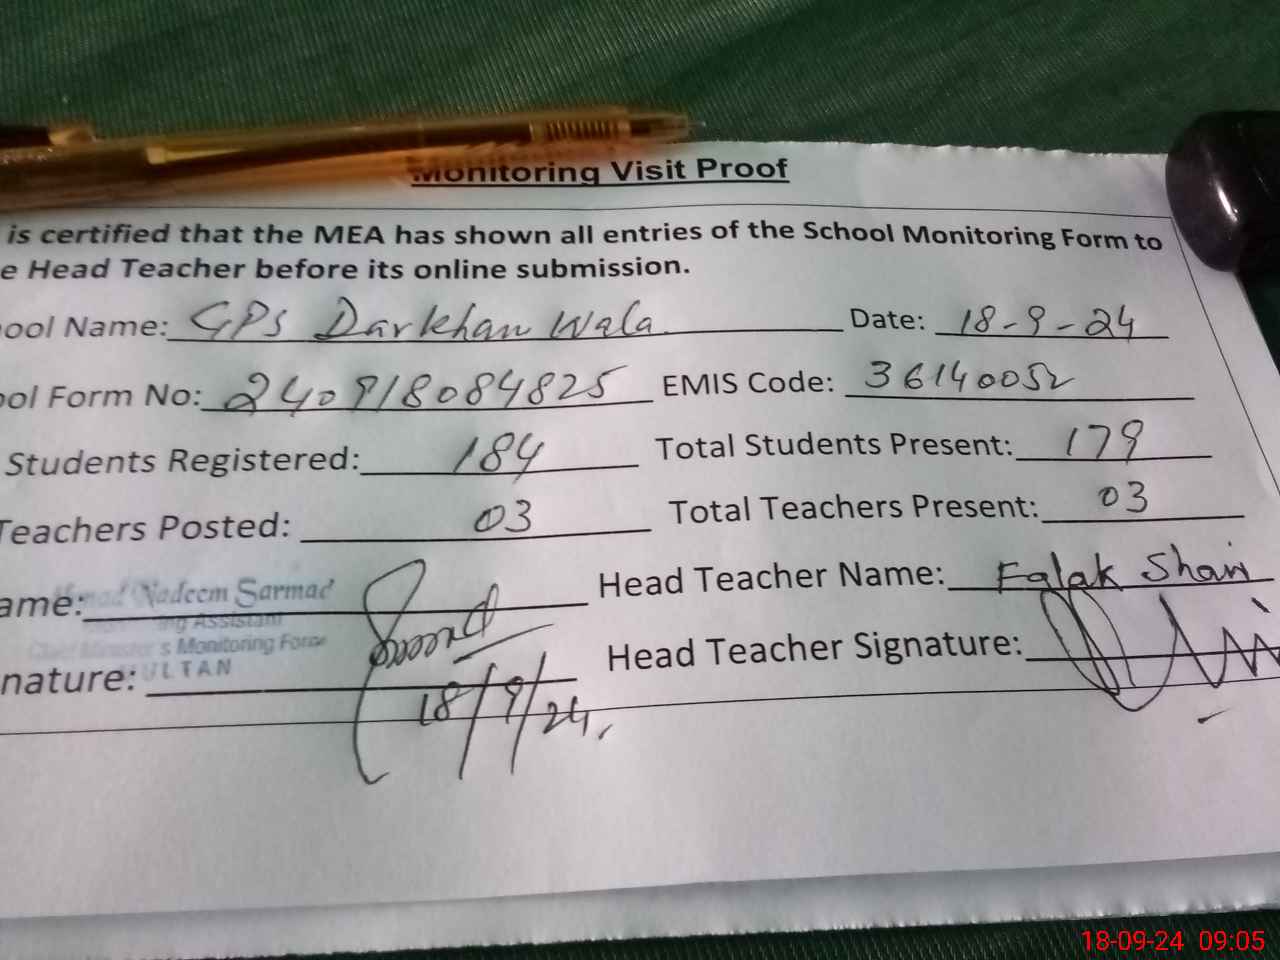 Monitoring Visit Proof
is certified that the MEA has shown all entries of the School Monitoring Form to
e Head Teacher before its online submission.
ool Name: GPS Darkhan Wala Date: 18-9-24
ool Form No: 240918084825 EMIS Code: 36140052
Students Registered: 184 Total Students Present: 179
Teachers Posted: 03 Total Teachers Present: 03
ame: Nadeem Sarmad Head Teacher Name: Falak Sheri
ing Assistant
Chief Minister's Monitoring Force
nature: MULTAN Head Teacher Signature:
18/9/24
18-09-24 09:05